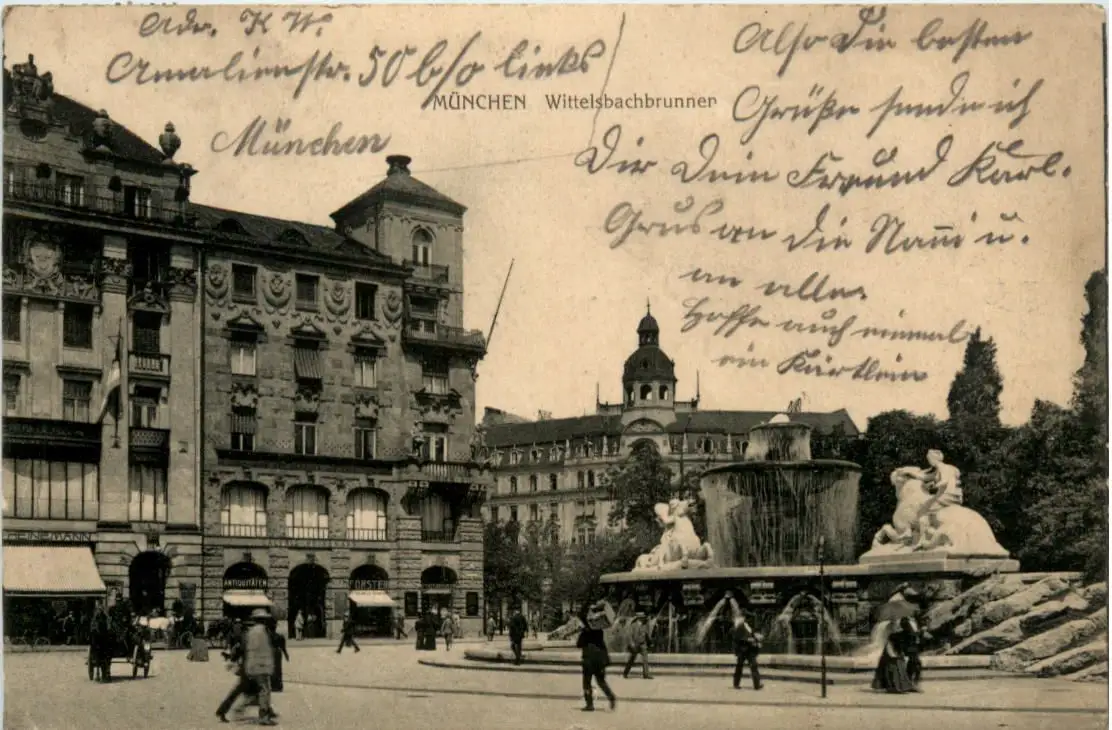 Adr. K W.
Amalienstr. 50 b/o links
München
MÜNCHEN Wittelsbachbrunnen
Also die besten
Grüße sende ich
Dir Dein Freund Karl.
Grus an die Nani u.
an alle.
Hoffe auch einmal
ein Kärtlein
HEINEMANN
ANTIQUITÄTEN
FÖRSTER